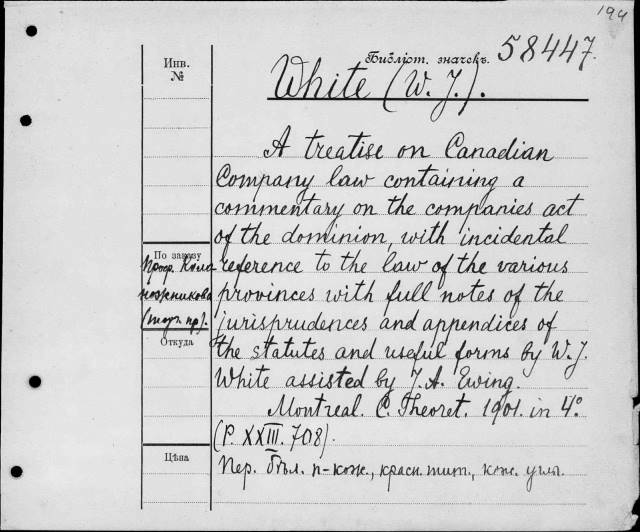 194
Инв.
№
Библіот. значекъ.
58447.
White (W. J.).
A treatise on Canadian
Company law containing a
commentary on the companies act
of the dominion, with incidental
По заказу
Проф. reference to the law of the various
provinces with full notes of the
jurisprudences and appendices of
Откуда
the statutes and useful forms by W. J.
White assisted by J. A. Ewing.
Montreal. C. Theoret. 1901. in 4°.
(P. XXIII. 708).
Цѣна
Пер. бѣл. п-кож., красн. тит., кож. углы.